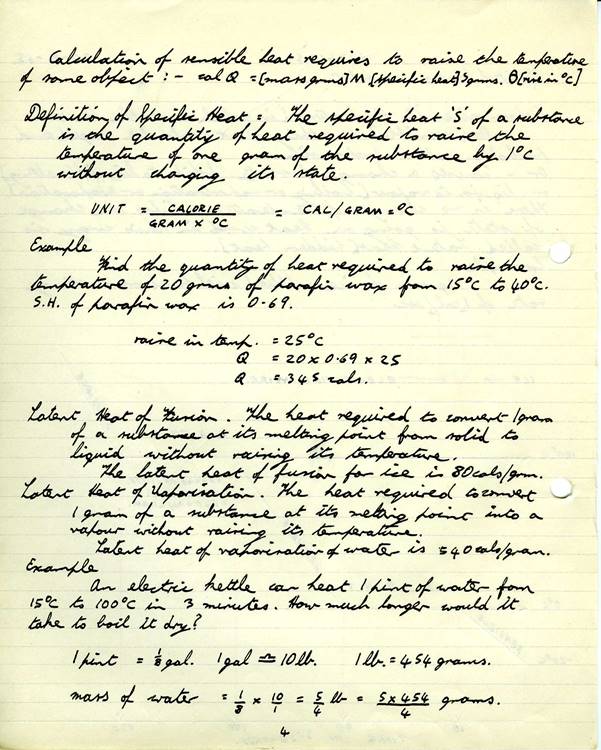 Calculation of sensible heat requires to raise the temperature
of some object :- cal Q = [mass grms] M [specific heat] S grms. θ [rise in °C]
Definition of Specific Heat = The specific heat 'S' of a substance
is the quantity of heat required to raise the
temperature of one gram of the substance by 1°C
without changing its state.
UNIT = CALORIE / GRAM X °C = CAL/GRAM = °C
Example
Find the quantity of heat required to raise the
temperature of 20 grms of parafin wax from 15°C to 40°C.
S.H. of parafin wax is 0.69.
raise in temp. = 25°C
Q = 20 x 0.69 x 25
Q = 345 cals.
Latent Heat of Fusion. The heat required to convert 1 gram
of a substance at its melting point from solid to
liquid without raising its temperature.
The latent heat of fusion for ice is 80 cals/grm.
Latent Heat of Vaporisation. The heat required to convert
1 gram of a substance at its melting point into a
vapour without raising its temperature.
Latent heat of vaporisation of water is 540 cals/gram.
Example
An electric kettle can heat 1 pint of water from
15°C to 100°C in 3 minutes. How much longer would it
take to boil it dry?
1 pint = 1/8 gal. 1 gal ≏ 10 lb. 1 lb. = 454 grams.
mass of water = 1/8 x 10/1 = 5/4 lb = 5x454/4 grams.
4